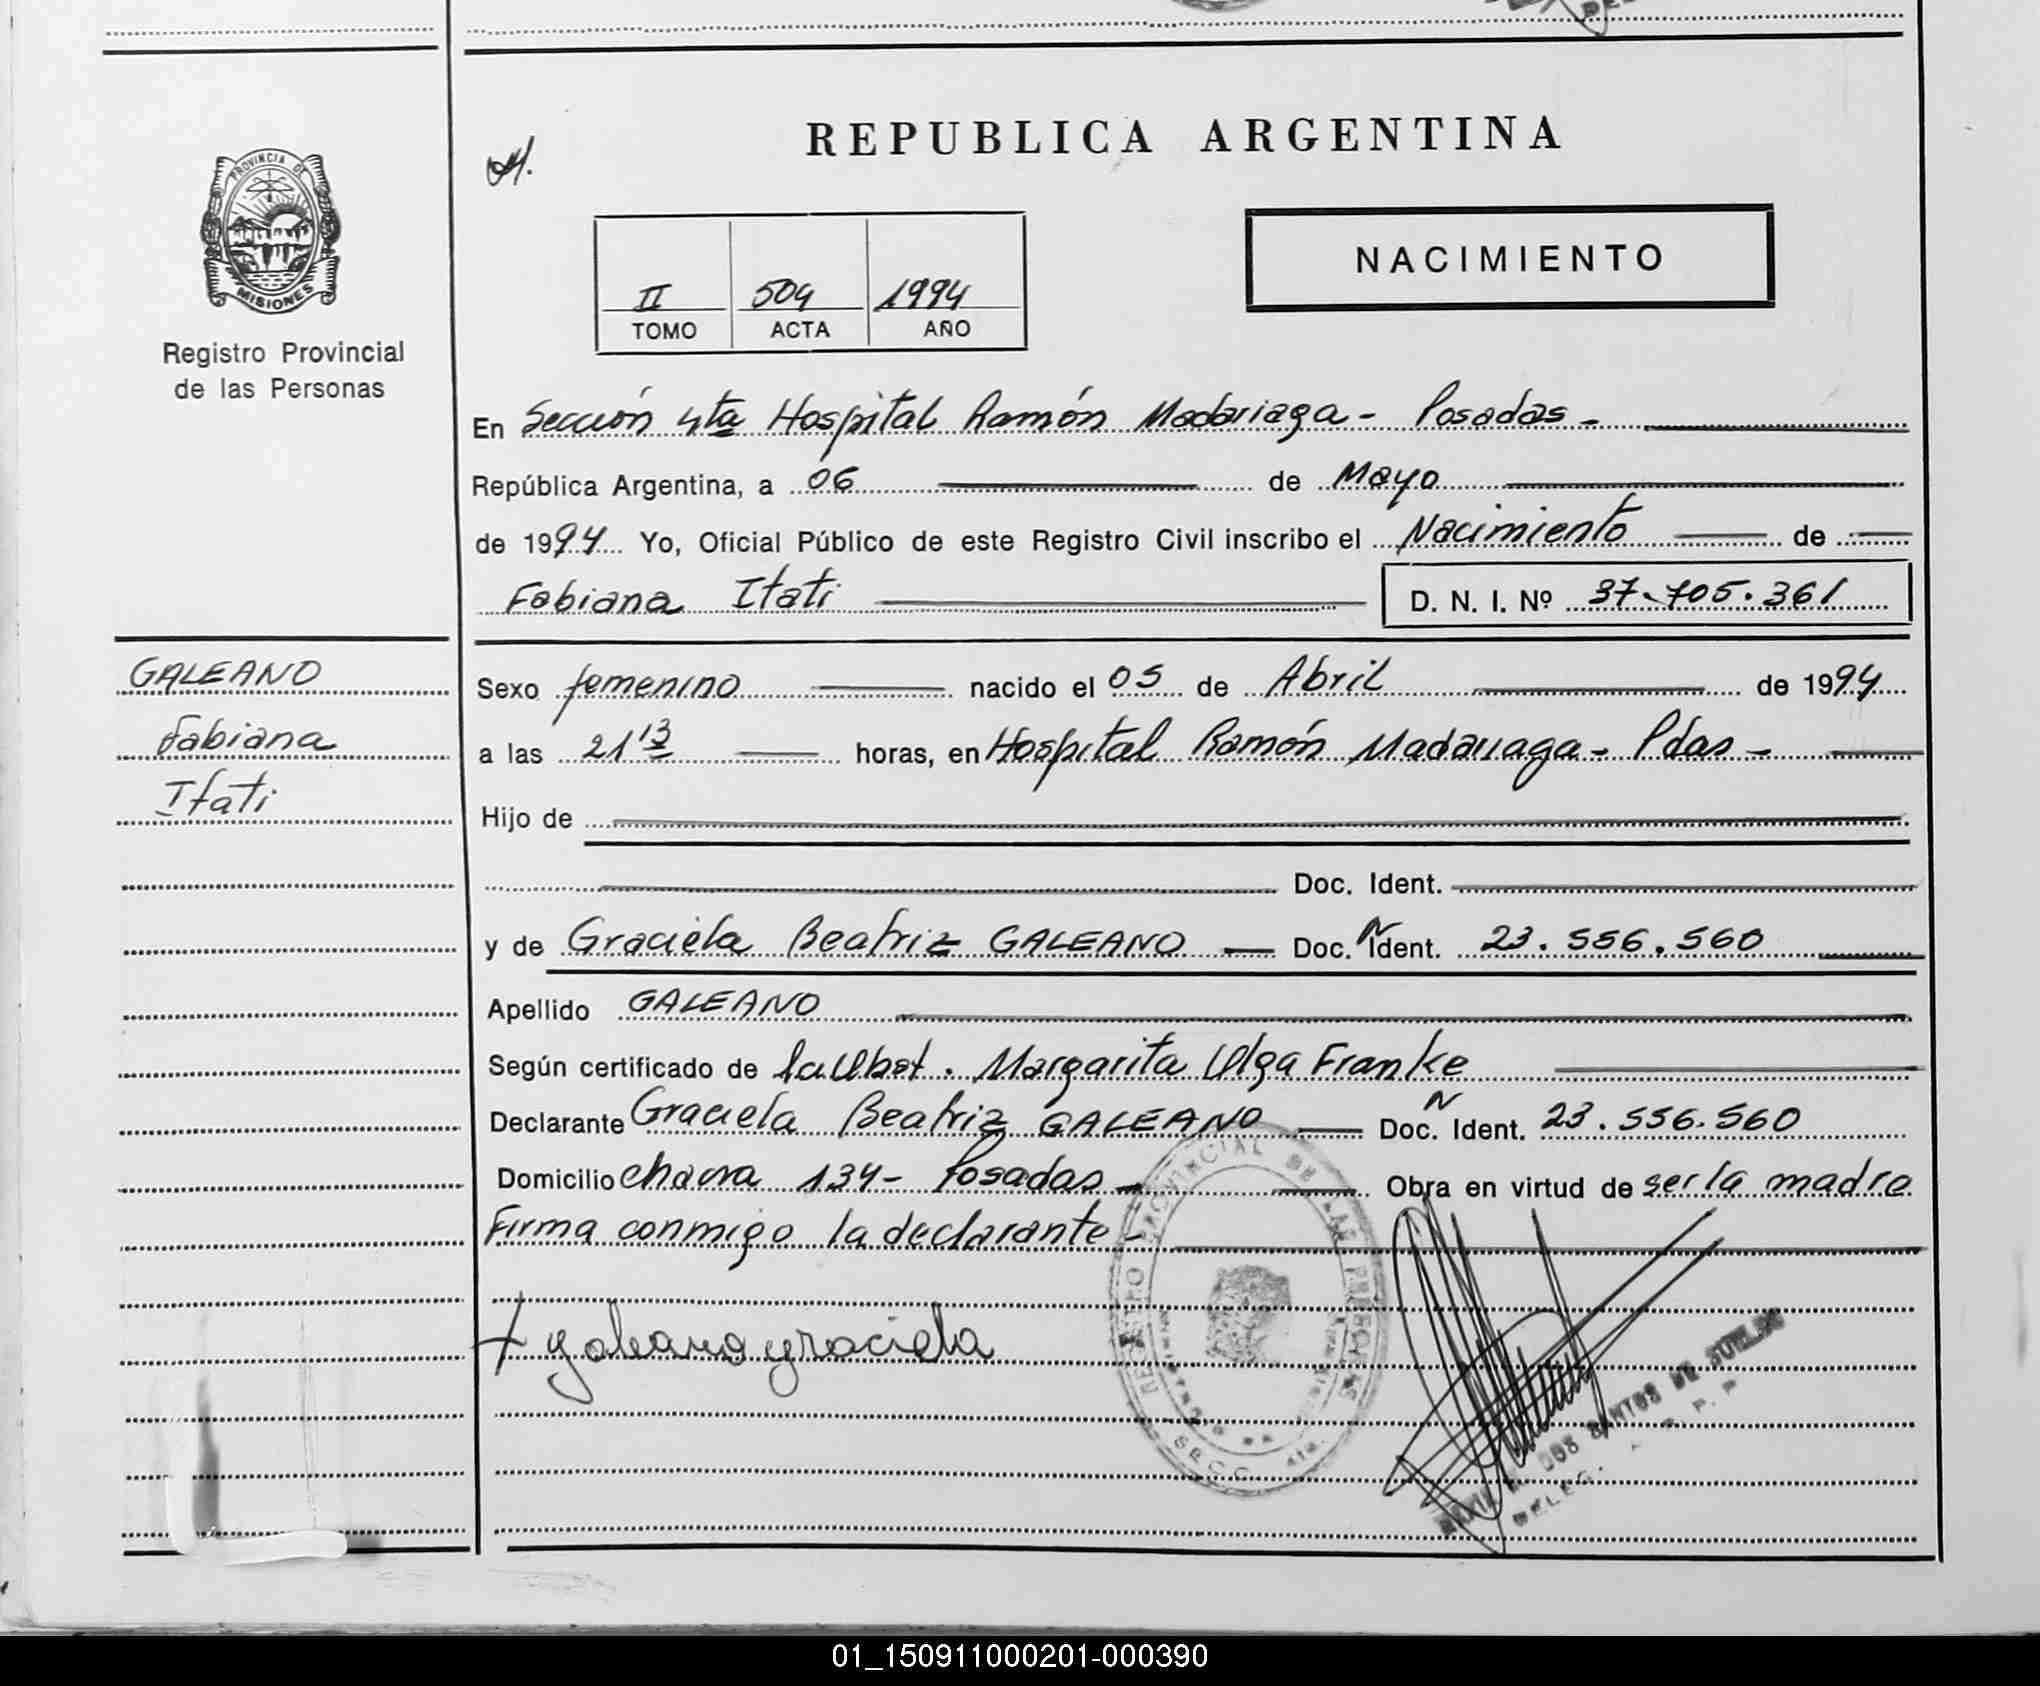 REPUBLICA ARGENTINA
PROVINCIA DE
MISIONES
Registro Provincial
de las Personas
II 504 1994
TOMO ACTA AÑO
NACIMIENTO
En Sección 4ta Hospital Ramón Madariaga - Posadas -
República Argentina, a 06 de Mayo
de 1994 Yo, Oficial Público de este Registro Civil inscribo el Nacimiento de
Fabiana Itati D. N. I. Nº 37.705.361
GALEANO
Fabiana
Itati
Sexo femenino nacido el 05 de Abril de 1994
a las 21 13 horas, en Hospital Ramón Madariaga - Pdas -
Hijo de
Doc. Ident.
y de Graciela Beatriz GALEANO Doc. N Ident. 23.556.560
Apellido GALEANO
Según certificado de la Obst. Margarita Olga Franke
Declarante Graciela Beatriz GALEANO Doc. N Ident. 23.556.560
Domicilio chacra 134 - Posadas - Obra en virtud de ser la madre
Firma conmigo la declarante -
galeano graciela
REGISTRO PROVINCIAL DE LAS PERSONAS
DOS SANTOS DE
DELEG. R. P. P.
01_150911000201-000390